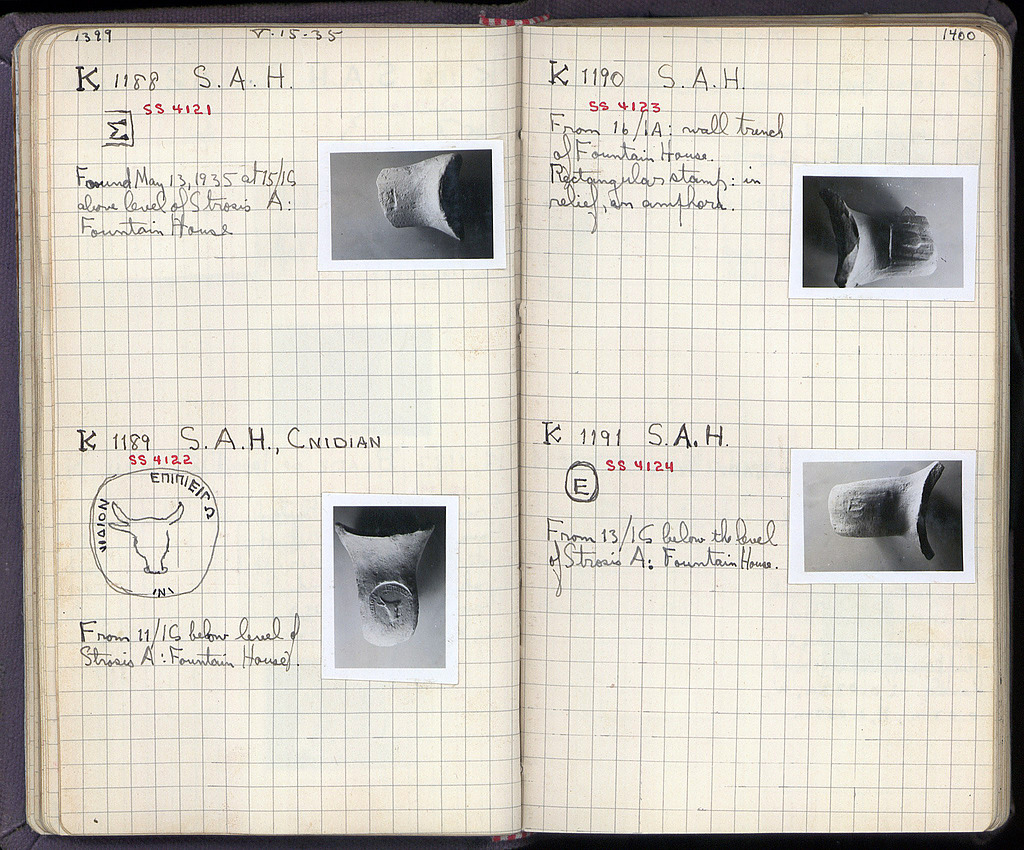 1399
V-15-35
K 1188 S.A.H.
SS 4121
Σ
Found May 13, 1935 at 15/ΙϚ
above level of Strosis A:
Fountain House
K 1189 S.A.H., CNIDIAN
SS 4122
ΕΠΙΠΕΙΓΩ
ΝΙΔΙΟΝ
ΙΝΙ
From 11/ΙϚ below level of
Strosis A: Fountain House.
1400
K 1190 S.A.H.
SS 4123
From 16/ΙΑ: wall trench
of Fountain House.
Rectangular stamp: in
relief, an amphora.
K 1191 S.A.H.
SS 4124
E
From 13/ΙϚ below the level
of Strosis A: Fountain House.